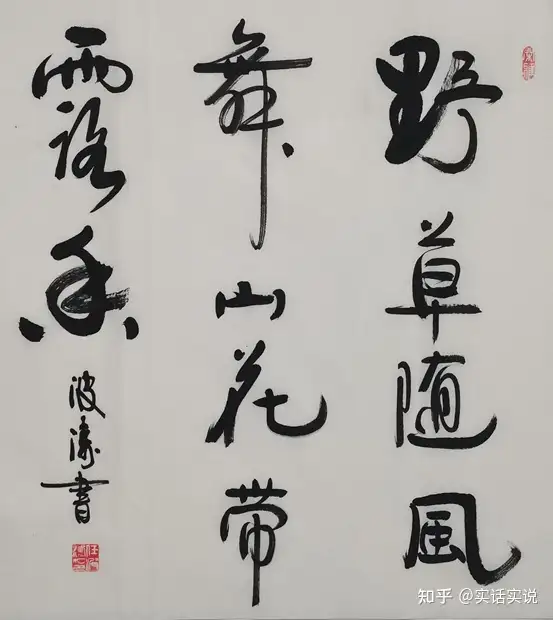 野草随風
舞山花带
露香
波涛書
知乎 @实话实说